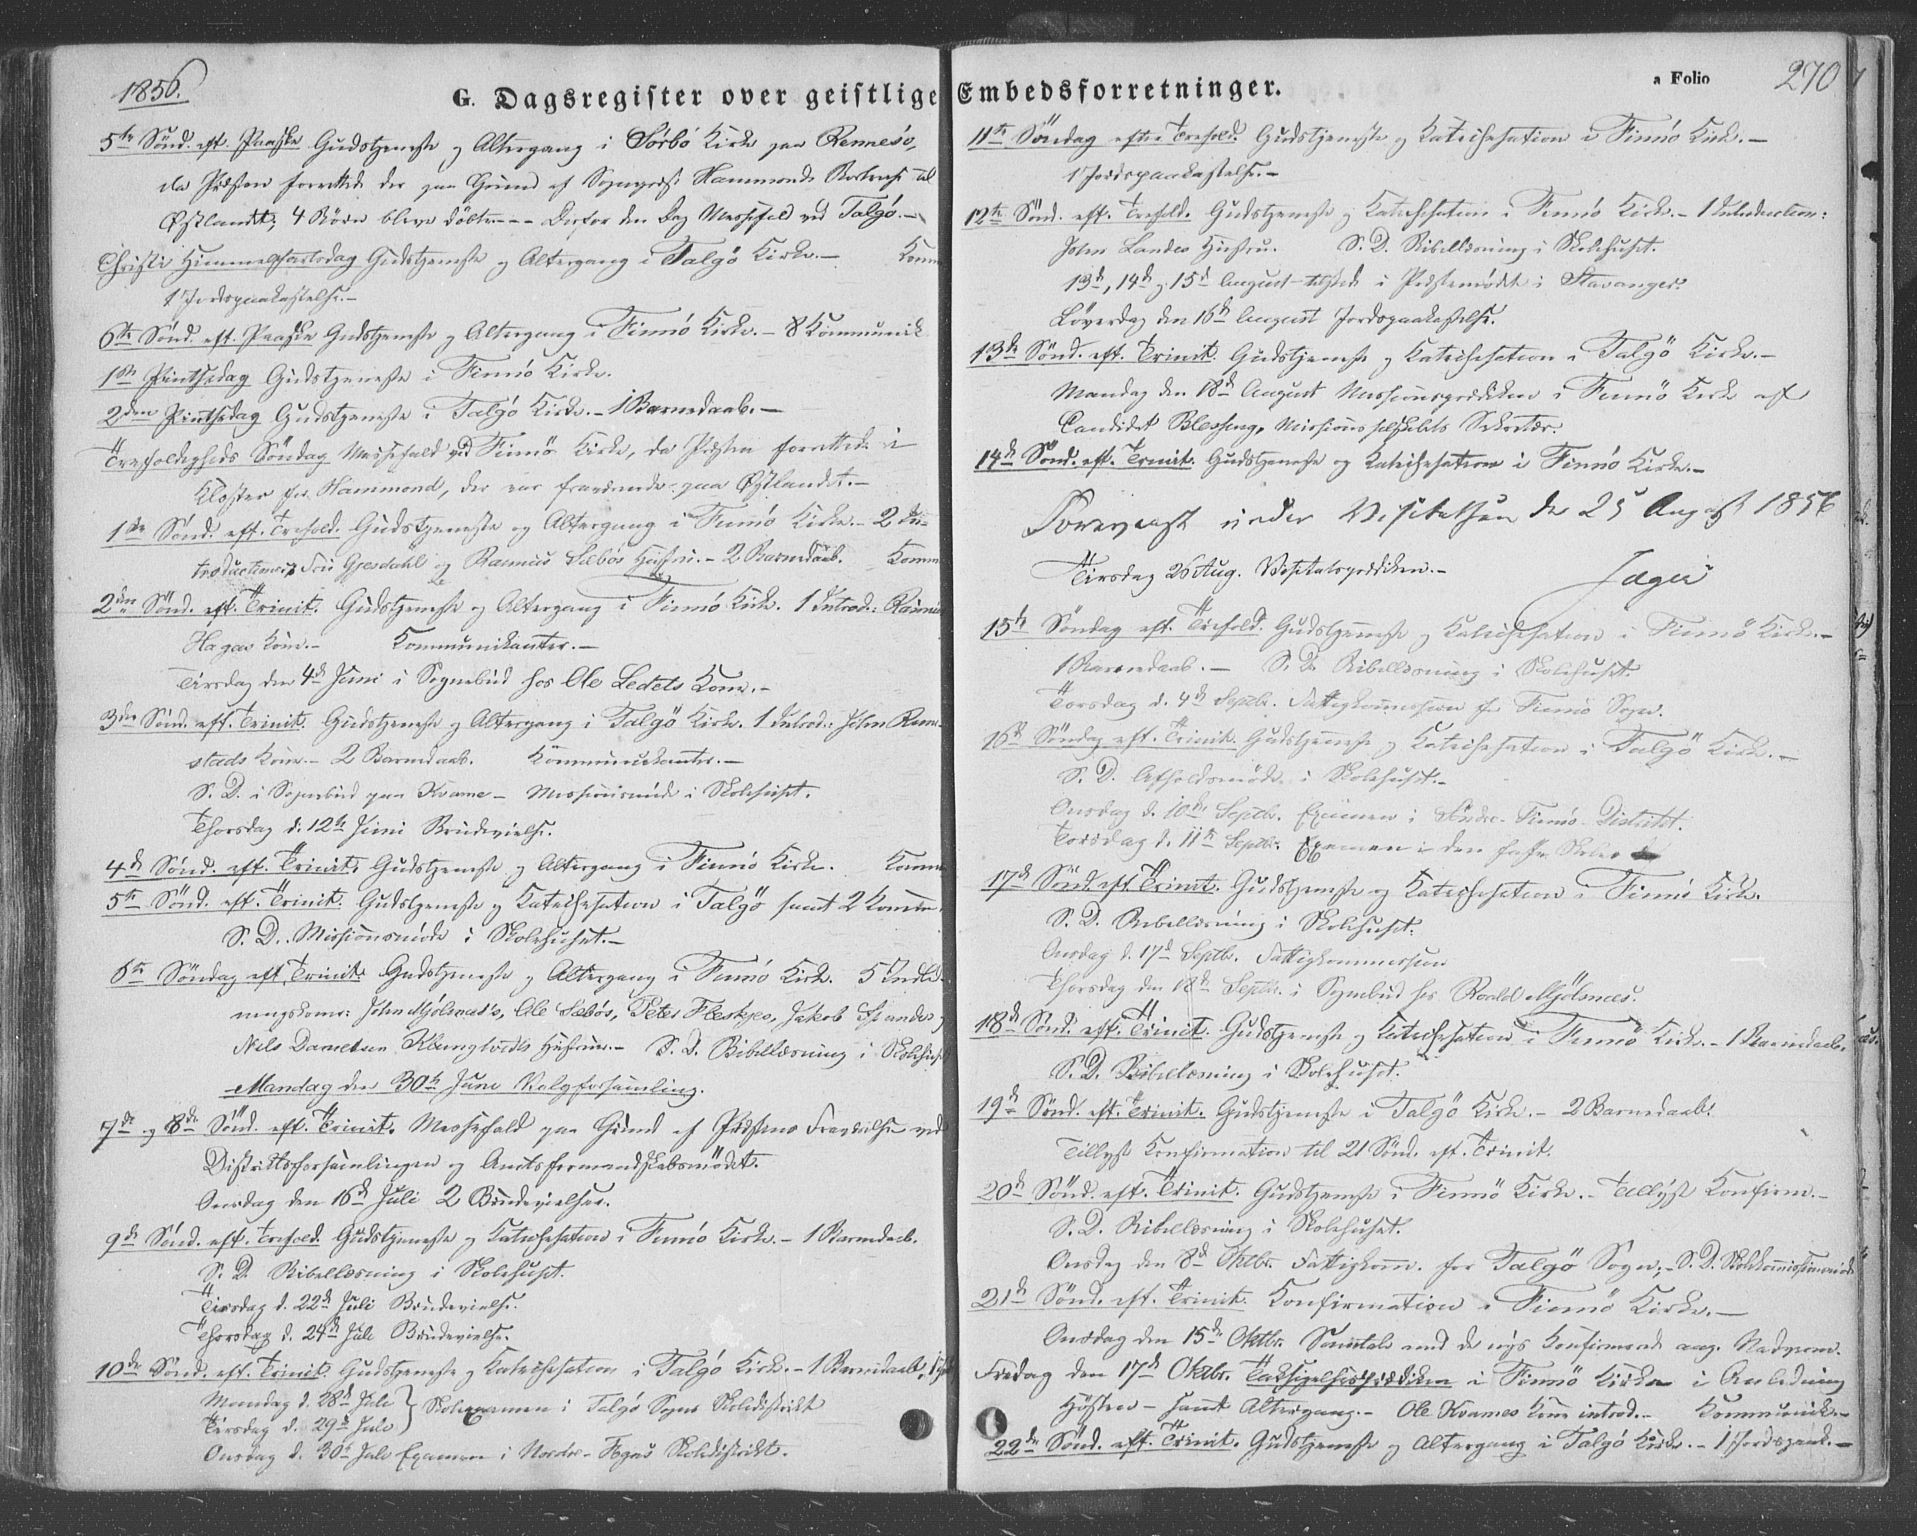 1856.
G. Dagsregister over geistlige Embedsforretninger.
a Folio 270
5te Sönd. eft. Paaske Gudstjeneste og Altergang i Sörbö Kirke paa Rennesö,
da Præsten forrettede der paa Grund af Sognepr. Hammonds Bortreise til
Østlandet; 4 Börn bleve döbte. - - Derfor den Dag Messefald ved Talgö. -
Christi Himmelfartsdag Gudstjeneste og Altergang i Talgö Kirke. - Komm
1 Jordspaakastelse. -
6te Sönd. eft. Paaske Gudstjeneste og Altergang i Finnö Kirke. - 8 Kommunik
1ste Pintsedag Gudstjeneste i Finnö Kirke.
2den Pintsedag Gudstjeneste i Talgö Kirke. - 1 Barnedaab. -
Trefoldigheds Söndag Messefald ved Finnö Kirke, da Præsten forrettede i
Kloster for Hammond, der var fraværende paa Østlandet. -
1ste Sönd. eft. Trefold. Gudstjeneste og Altergang i Finnö Kirke. - 2 In-
troductioner, Gjesdahl og Rasmus Sæbös Hustru. - 2 Barnedaab. Komm
2den Sönd. eft. Trinit. Gudstjeneste og Altergang i Finnö Kirke. 1 Introd.: Rasmus
Hagas Kone. - Kommunikanter. -
Tirsdag den 4de Juni i Sognebud hos Ole Ledets Kone. -
3die Sönd. eft. Trinit. Gudstjeneste og Altergang i Talgö Kirke. 1 Introd.: John Renn-
stads Kone. - 2 Barnedaab. Kommunikanter. -
S. D. i Sognebud paa Kvame - Missionsmöde i Skolehuset.
Thorsdag d. 12te Juni Brudevielse.
4de Sönd. eft. Trinit. Gudstjeneste og Altergang i Finnö Kirke. Komm
5te Sönd. eft. Trinit. Gudstjeneste og Katechisation i Talgö samt 2 Komm.
S. D. Missionsmöde i Skolehuset. -
6te Söndag eft. Trinit. Gudstjeneste og Altergang i Finnö Kirke. 5 Indled-
ningskoner: John Mjölsnæs's, Ole Sæbös, Peter Fleskjes, Jakob
Nils Danielsen Klungtvedts Hustruer. - S. D. Bibellæsning i Skolehuset
Mandag den 30te Juni Valgforsamling.
7de og 8de Sönd. eft. Trinit. Messefald paa Grund af Præstens Fraværelse ved
Distriktsforsamlingen og Amtsformandskabsmödet.
Onsdag den 16de Juli 2 Brudevielser.
9de Sönd. eft. Trefold. Gudstjeneste og Katechisation i Finnö Kirke. - 1 Barnedaab.
S. D. Bibellæsning i Skolehuset.
Tirsdag d. 22de Juli Brudevielse.
Thorsdag d. 24de Juli Brudevielse.
10de Sönd. eft. Trinit. Gudstjeneste og Katechisation i Talgö Kirke. - 1 Barnedaab,
Mandag d. 28de Juli
Tirsdag d. 29de Juli } Skoleexamen i Talgö Sogns Skoledistrikt
Onsdag d. 30te Juli Examen i Nordre-Fognös Skoledistrikt.
11te Söndag efter Trefold. Gudstjeneste og Katechisation i Finnö Kirke. -
1 Jordspaakastelse. -
12te Sönd. eft. Trefold. Gudstjeneste og Katechisation i Finnö Kirke. - 1 Introduction:
John Landes Hustru. S. D. Bibellæsning i Skolehuset.
13de, 14de og 15de August tilstede i Præstemödet i Stavanger.
Löverdag den 16de August Jordspaakastelse.
13de Sönd. eft. Trinit. Gudstjeneste og Katechisation i Talgö Kirke. -
Mandag den 18de August Missionsprædiken i Finnö Kirke af
Candidat Blessing, Missionsselskabets Sekretær.
14de Sönd. eft. Trinit. Gudstjeneste og Katechisation i Finnö Kirke. -
Foreviist under Visitatsen den 25 August 1856
Tirsdag 26 Aug. Visitatsprædiken. - Jager
15de Söndag eft. Trefold. Gudstjeneste og Katechisation i Finnö Kirke. -
1 Barnedaab. - S. D. Bibellæsning i Skolehuset.
Torsdag d. 4de Septbr. Fattigkommission for Finnö Sogn.
16de Söndag eft. Trinit. Gudstjeneste og Katechisation i Talgö Kirke. -
S. D. Afholdsmöde i Skolehuset. -
Onsdag d. 10de Septbr. Examen i Söndre-Finnö-Distrikt.
Torsdag d. 11te Septbr. Examen i den faste Skole
17de Sönd. eft. Trinit. Gudstjeneste og Katechisation i Finnö Kirke.
S. D. Bibellæsning i Skolehuset.
Onsdag d. 17de Septbr. Fattigkommission
Thorsdag den 18de Septbr. i Sognebud hos Roald Mjölsnæs.
18de Sönd. eft. Trinit. Gudstjeneste og Katechisation i Finnö Kirke. - 1 Barnedaab.
S. D. Bibellæsning i Skolehuset.
19de Sönd. eft. Trinit. Gudstjeneste i Talgö Kirke. - 2 Barnedaab.
Tillyst Konfirmation til 21 Sönd. eft. Trinit.
20de Sönd. eft. Trinit. Gudstjeneste i Finnö Kirke. - Tillyst Konfirm. -
S. D. Bibellæsning i Skolehuset.
Onsdag den 8de Oktbr. Fattigkomm. for Talgö Sogn; - S. D. Skolekommissionsmöde
21de Sönd. eft. Trinit. Konfirmation i Finnö Kirke. -
Onsdag den 15de Oktbr. Samtale med de nys Konfirmerede ang. Nadveren.
Fredag den 17de Oktbr. Taksigelsesprædiken i Finnö Kirke i Anledning
Hösten - samt Altergang. - Ole Kvames Kone introd. - Kommunik. -
22de Sönd. eft. Trinit. Gudstjeneste og Altergang i Talgö Kirke. - 1 Jordspaak. -